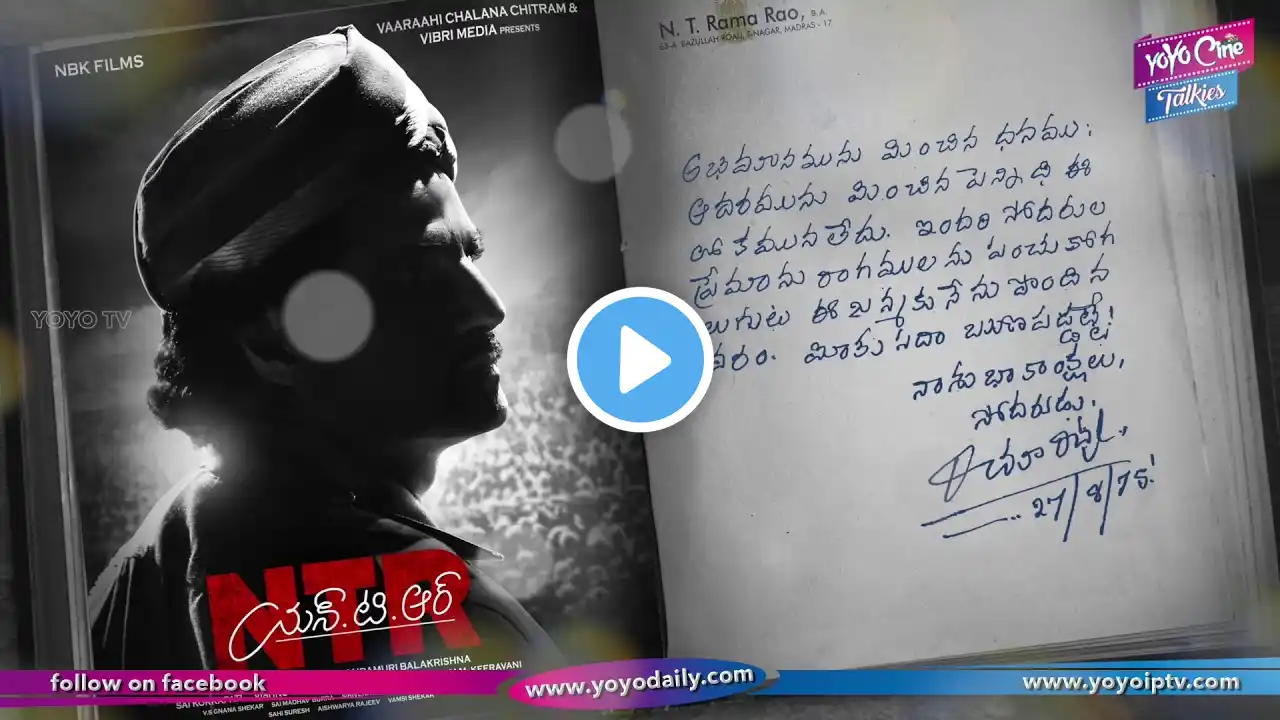 VAARAAHI CHALANA CHITRAM &
VIBRI MEDIA PRESENTS
NBK FILMS
YOYO TV
NTR
యన్.టి.ఆర్
NANDAMURI BALAKRISHNA
KEERAVANI
V.S GNANA SHEKAR SAI MADHAV BURRA
VAMSI SHEKAR
SAHI SURESH AISHWARYA RAJEEV
N. T. Rama Rao, B.A.
BAZULLAH ROAD, T-NAGAR, MADRAS - 17
అభిమానమును మించిన ధనము;
ఆదరమును మించిన పెన్నిధి ఈ
లోకమున లేదు. ఇందరి సోదరుల
ప్రేమానురాగములను పంచుకోగ
లుగుట ఈ జన్మకు నేను పొందిన
వరం. మీకు సదా ఋణపడ్డట్లే!
నా శుభాకాంక్షలు,
సోదరుడు.
27/8/75.
YOYO Cine
Talkies
follow on facebook
www.yoyodaily.com
www.yoyoiptv.com